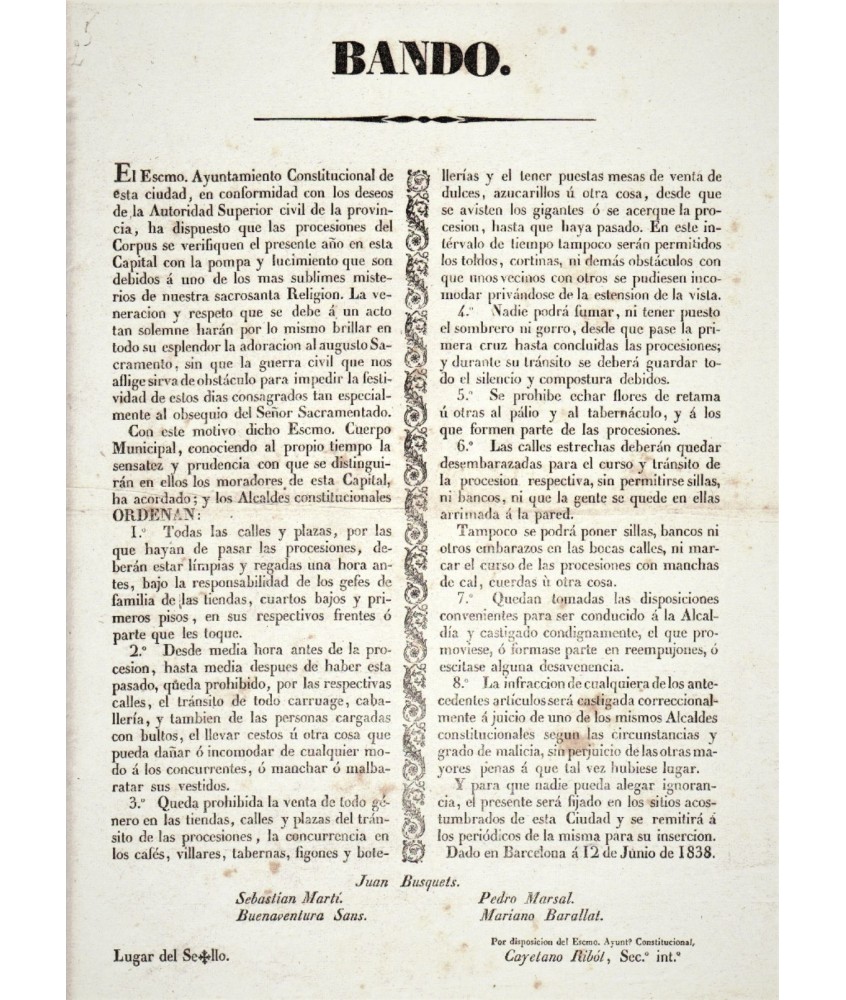 BANDO.
El Escmo. Ayuntamiento Constitucional de
esta ciudad, en conformidad con los deseos
de la Autoridad Superior civil de la provin-
cia, ha dispuesto que las procesiones del
Corpus se verifiquen el presente año en esta
Capital con la pompa y lucimiento que son
debidos á uno de los mas sublimes miste-
rios de nuestra sacrosanta Religion. La ve-
neracion y respeto que se debe á un acto
tan solemne harán por lo mismo brillar en
todo su esplendor la adoracion al augusto Sa-
cramento, sin que la guerra civil que nos
aflige sirva de obstáculo para impedir la festi-
vidad de estos dias consagrados tan especial-
mente al obsequio del Señor Sacramentado.
Con este motivo dicho Escmo. Cuerpo
Municipal, conociendo al propio tiempo la
sensatez y prudencia con que se distingui-
rán en ellos los moradores de esta Capital,
ha acordado; y los Alcaldes constitucionales
ORDENAN:
1.º Todas las calles y plazas, por las
que hayan de pasar las procesiones, de-
berán estar limpias y regadas una hora an-
tes, bajo la responsabilidad de los gefes de
familia de las tiendas, cuartos bajos y pri-
meros pisos, en sus respectivos frentes ó
parte que les toque.
2.º Desde media hora antes de la pro-
cesion, hasta media despues de haber esta
pasado, queda prohibido, por las respectivas
calles, el tránsito de todo carruage, caba-
llería, y tambien de las personas cargadas
con bultos, el llevar cestos ú otra cosa que
pueda dañar ó incomodar de cualquier mo-
do á los concurrentes, ó manchar ó malba-
ratar sus vestidos.
3.º Queda prohibida la venta de todo gé-
nero en las tiendas, calles y plazas del trán-
sito de las procesiones, la concurrencia en
los cafés, villares, tabernas, figones y bote-
llerías y el tener puestas mesas de venta de
dulces, azucarillos ú otra cosa, desde que
se avisten los gigantes ó se acerque la pro-
cesion, hasta que haya pasado. En este in-
térvalo de tiempo tampoco serán permitidos
los toldos, cortinas, ni demás obstáculos con
que unos vecinos con otros se pudiesen inco-
modar privándose de la estension de la vista.
4.º Nadie podrá fumar, ni tener puesto
el sombrero ni gorro, desde que pase la pri-
mera cruz hasta concluidas las procesiones;
y durante su tránsito se deberá guardar to-
do el silencio y compostura debidos.
5.º Se prohibe echar flores de retama
ú otras al pálio y al tabernáculo, y á los
que formen parte de las procesiones.
6.º Las calles estrechas deberán quedar
desembarazadas para el curso y tránsito de
la procesion respectiva, sin permitirse sillas,
ni bancos, ni que la gente se quede en ellas
arrimada á la pared.
Tampoco se podrá poner sillas, bancos ni
otros embarazos en las bocas calles, ni mar-
car el curso de las procesiones con manchas
de cal, cuerdas ú otra cosa.
7.º Quedan tomadas las disposiciones
convenientes para ser conducido á la Alcal-
día y castigado condignamente, el que pro-
moviese, ó formase parte en reempujones, ó
escitase alguna desavenencia.
8.º La infraccion de cualquiera de los ante-
cedentes artículos será castigada correccional-
mente á juicio de uno de los mismos Alcaldes
constitucionales segun las circunstancias y
grado de malicia, sin perjuicio de las otras ma-
yores penas á que tal vez hubiese lugar.
Y para que nadie pueda alegar ignoran-
cia, el presente será fijado en los sitios acos-
tumbrados de esta Ciudad y se remitirá á
los periódicos de la misma para su insercion.
Dado en Barcelona á 12 de Junio de 1838.
Juan Busquets.
Sebastian Martí. Pedro Marsal.
Buenaventura Sans. Mariano Barallat.
Por disposicion del Escmo. Ayuntº Constitucional,
Lugar del Se✠llo. Cayetano Ribót, Sec.º int.º